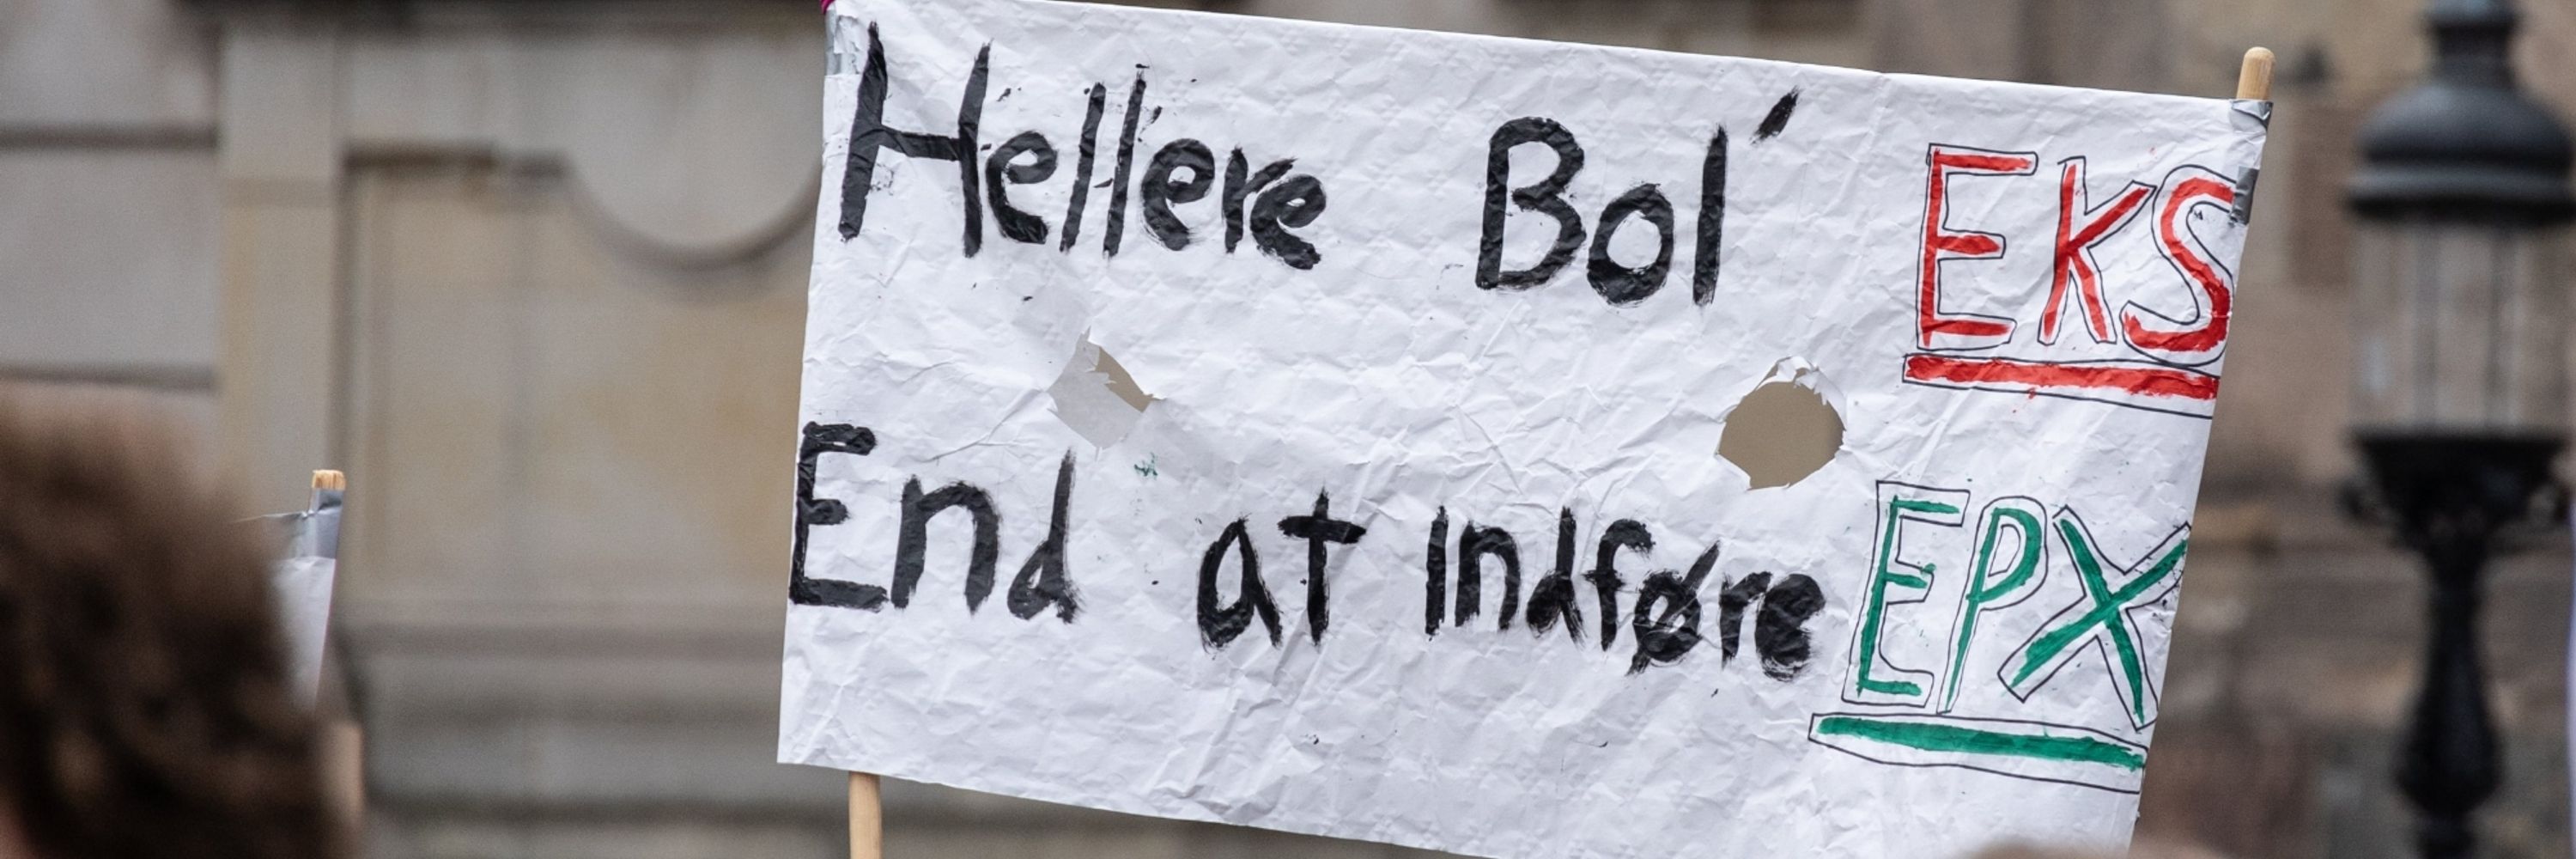 Hellere Bol' EKS
End at Indføre EPX